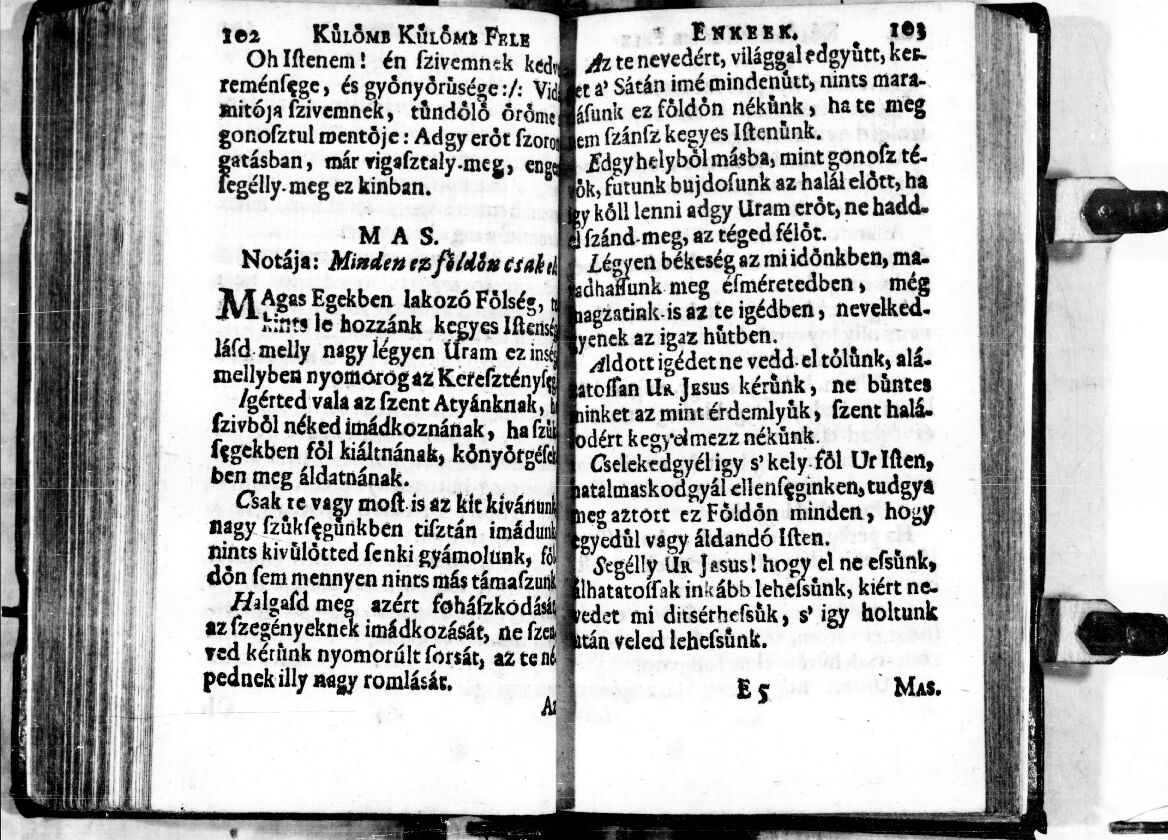 102 KŮLŐMB KŮLŐMB FELE
Oh Iſtenem! én ſzivemnek kedv
reménſęge, és győnyőrůsége :/: Vid
mitója ſzivemnek, tůndőlő őrőme
gonoſztul mentője: Adgy erőt ſzoro
gatásban, már vigaſztaly-meg, enge
ſegélly-meg ez kinban.
MAS.
Notája: Minden ez főldőn csak el
MAgas Egekben lakozó Főlség,
kints le hozzánk kegyes Iſtenség
láſd-melly nagy légyen Uram ez inség
mellyben nyomorog az Kereſztényſég
Igérted vala az ſzent Atyánknak,
ſzivből néked imádkoznának, ha ſzůk
ſęgekben fől kiáltnának, kőnyőrgések
ben meg áldatnának.
Csak te vagy moſt-is az kit kivánunk
nagy ſzůkſęgůnkben tiſztán imádunk
nints kivůlőtted ſenki gyámolunk, fől
dőn ſem mennyen nints más támaſzunk
Halgaſd meg azért foháſzkodását
az ſzegényeknek imádkozását, ne ſzen
ved kérůnk nyomorúlt ſorsát, az te né
pednek illy nagy romlását.
Az
ENKEEK. 103
Az te nevedért, világgal edgyůtt, ker-
et a' Sátán imé mindenůtt, nints mara-
ásunk ez főldőn nékůnk, ha te meg
em ſzánſz kegyes Iſtenůnk.
Edgy helyből másba, mint gonoſz té-
ők, futunk bujdoſunk az halál előtt, ha
gy kőll lenni adgy Uram erőt, ne hadd-
el ſzánd-meg, az téged félőt.
Légyen békeség az mi időnkben, ma-
adhaſſunk meg éſméretedben, még
magzatink-is az te igédben, nevelked-
yenek az igaz hůtben.
Aldott igédet ne vedd-el tőlůnk, alá-
atoſſan UR JESUS kérůnk, ne bůntes
minket az mint érdemlyůk, ſzent halá-
odért kegyelmezz nékůnk.
Cselekedgyél igy s' kely-fől Ur Iſten,
hatalmaskodgyál ellenſęginken, tudgya
meg aztott ez Főldőn minden, hogy
egyedůl vagy áldandó Iſten.
Segélly UR JESUS! hogy el ne eſsůnk,
álhatatoſſak inkább leheſsůnk, kiért ne-
vedet mi ditsérheſsůk, s' igy holtunk
után veled leheſsůnk.
E 5 MAS.